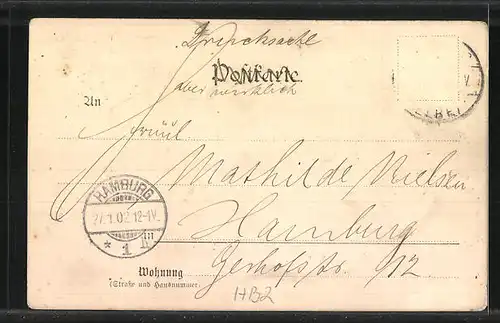 Drucksache
Postkarte.
aber wirklich
An
Fräul
Mathilde Nielsen
HAMBURG
27.1.02 12-1V.
* 1 h
in Hamburg
Wohnung
(Straße und Hausnummer)
Gerhofstr. 12
HB2